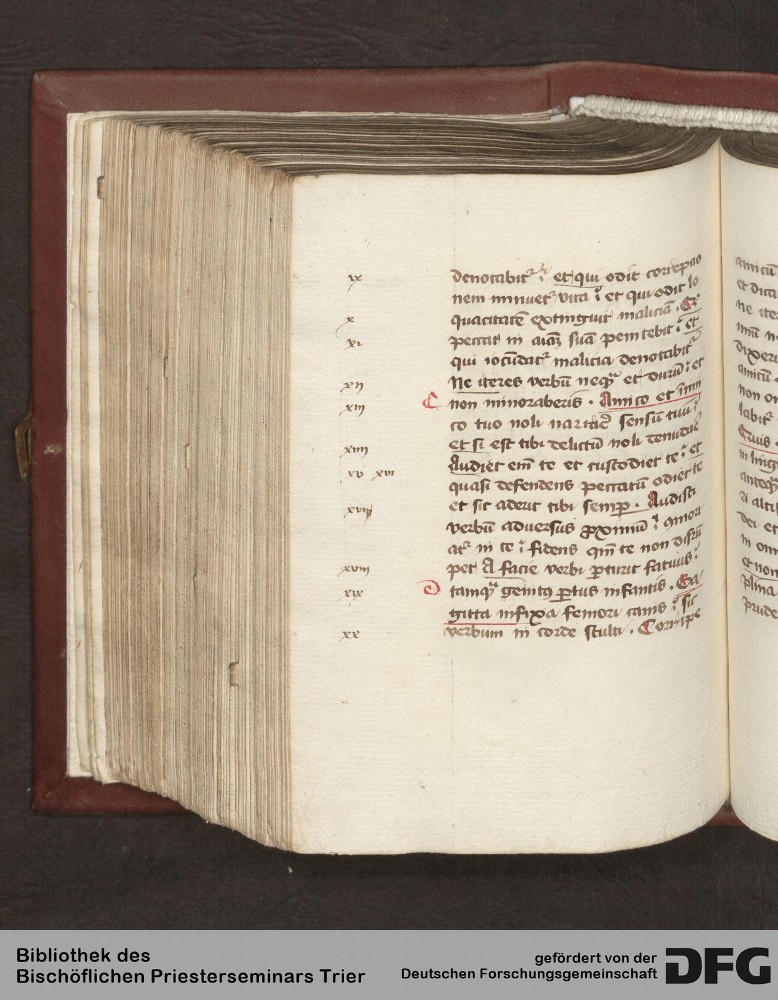 ix
x
xi
xii
xiii
xiiii
xv xvi
xvii
xviii
xix
xx
denotabit᷑ : et qui odit correpcio
nem minuet᷑ vita : et qui odit lo
quacitatē extinguit maliciā . Qͥ
peccat in aīaꝫ suā penitebit : et
qui iocūdat᷑ malicia denotabit᷑
Ne iteres verbū neqͣꝫ et durū : et
non minoraberis . Amico et inimi
co tuo noli narrare sensū tuū :
et si est tibi delictū noli denudare
Audiet em̄ te et custodiet te : et
quasi defendens peccatū odiet te
et sic aderit tibi semꝑ . Audisti
verbū adversus ꝓximū : 9mori
at᷑ in te : fidens qm̄ te non disrū
pet A facie verbi ꝑturit fatuus :
tamqͣꝫ gemitꝰ ꝑtus infantis . Sa
gitta infixa femori canis : sic
verbum in corde stulti . Corripe
amicū
et dica
ne ite
dixer
amicū
non o
labit᷑
in ling
altis
dei et
in om
et non
plīma
prude
Bibliothek des
Bischöflichen Priesterseminars Trier
gefördert von der
Deutschen Forschungsgemeinschaft
DFG